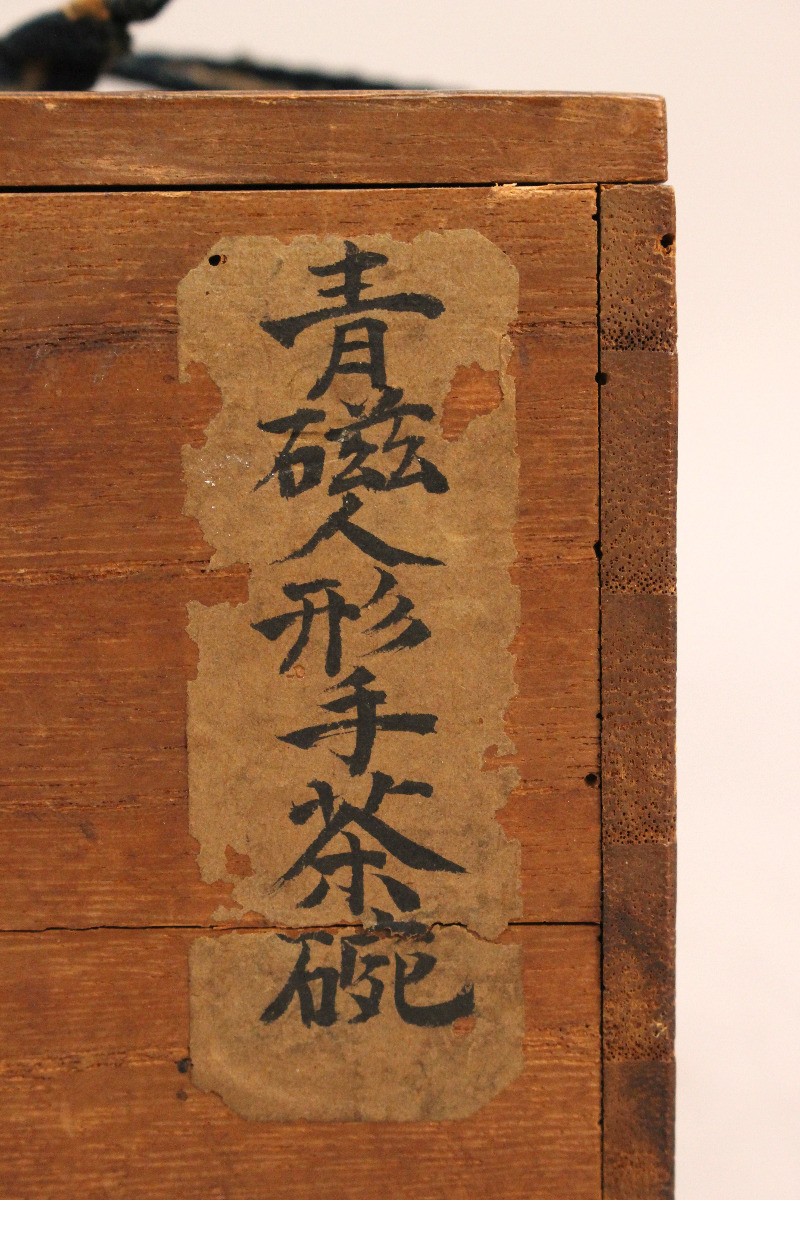 青磁人形手茶碗